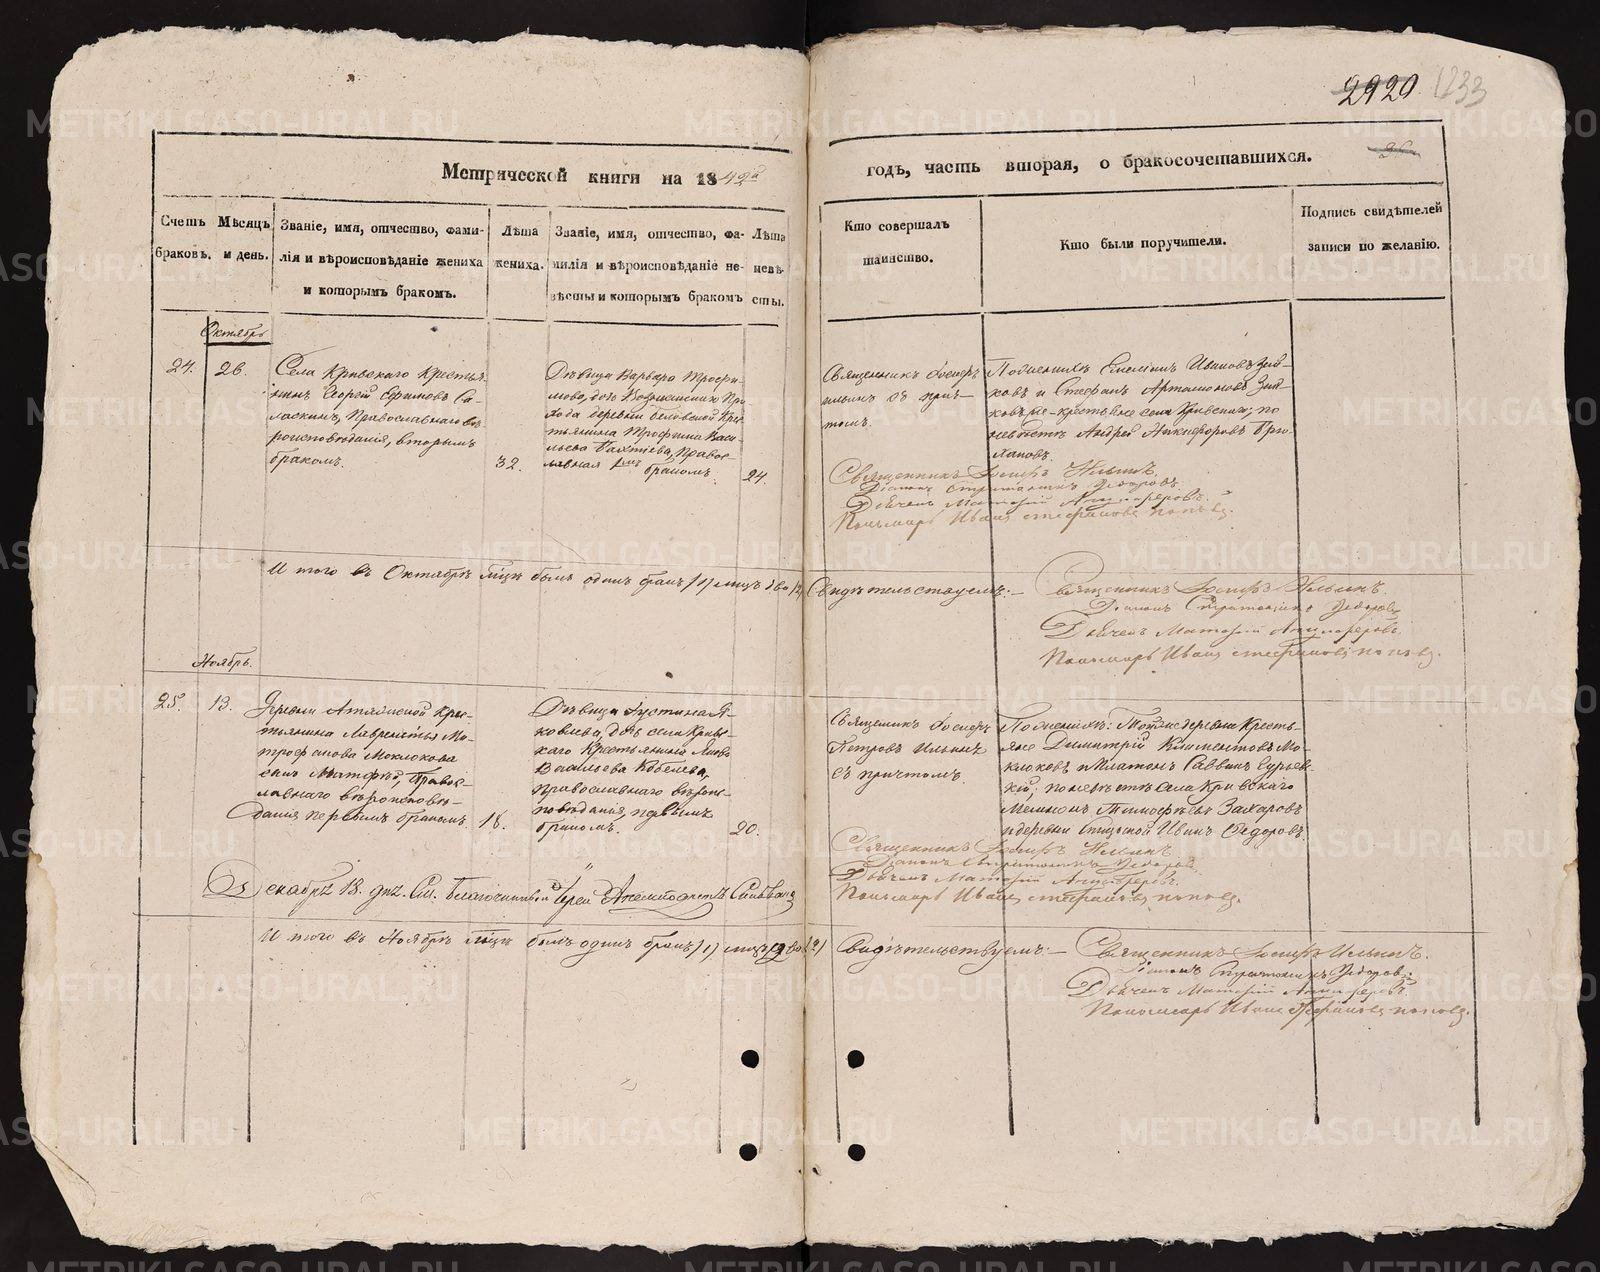 2920 1233
Метрической книги на 1842й
годъ, часть вторая, о бракосочетавшихся.
Счетъ браковъ.
Мѣсяцъ и день.
Званіе, имя, отчество, фами-
лія и вѣроисповѣданіе жениха
и которымъ бракомъ.
Лѣта
жениха.
Званіе, имя, отчество, фа-
милія и вѣроисповѣданіе не-
вѣсты и которымъ бракомъ
Лѣта
невѣ-
сты.
Кто совершалъ
таинство.
Кто были поручители.
Подпись свидѣтелей
записи по желанію.
Октябрь
24.
26.
Села Кривскаго Крестья-
нинъ Георгій Ефимовъ
Православнаго вѣ-
роисповѣданія, вторымъ
бракомъ.
32.
Дѣвица Варвара Трофи-
мова, дочь Вознесенскаго При-
хода деревни Беловской Крес-
тьянина Трофима Васи-
льева Бахтіева, Правос-
лавная бракомъ.
24.
Священникъ Іосифъ
Ильинъ съ прич-
томъ.
По женихѣ Ивановъ
и Стефанъ Артамоновъ
крестьяне села Кривскаго; по
невѣстѣ Андрей Никифоровъ
Священникъ Іосифъ Ильинъ.
Діаконъ Стратоникъ Ѳедоровъ.
Дьячекъ Матѳій
Пономарь Иванъ Стефановъ поповъ.
И того въ Октябрѣ мцѣ былъ одинъ бракъ /1/ лицъ два /2/
Свидѣтельствуемъ:-
Священникъ Іосифъ Ильинъ.
Діаконъ Стратоникъ Ѳедоровъ
Дьячекъ Матѳій
Пономарь Иванъ Стефановъ поповъ.
Ноябрь.
25.
13.
Деревни Крес-
тьянина Лаврентья Ми-
трофанова Моклокова
сынъ Матфей, Правос-
лавнаго вѣроисповѣ-
данія первымъ бракомъ.
18.
Дѣвица Іустина Я-
ковлева, дочь села Кривс-
каго Крестьянина Якова
Васильева Кобелева,
Православнаго вѣроис-
повѣданія, первымъ
бракомъ.
20.
Священникъ Іосифъ
Петровъ Ильинъ
съ причтомъ.
По женихѣ: Тойже деревни Кресть-
яне Димитрій Климентовъ Мо-
клоковъ и Платонъ Саввинъ
по невѣстѣ села Кривскаго
Тимофѣевъ Захаровъ
и деревни Иванъ Ѳедоровъ.
Священникъ Іосифъ Ильинъ
Діаконъ Стратоникъ Ѳедоровъ.
Дьячекъ Матѳій
Пономарь Иванъ Стефановъ поповъ.
Декабря 18. дня. См. Благочинный Іерей
И того въ Ноябрѣ мцѣ былъ одинъ бракъ /1/ лицъ два /2/
Свидѣтельствуемъ:-
Священникъ Іосифъ Ильинъ.
Діаконъ Стратоникъ Ѳедоровъ.
Дьячекъ Матѳій
Пономарь Иванъ Стефановъ поповъ.
METRIKI.GASO-URAL.RU